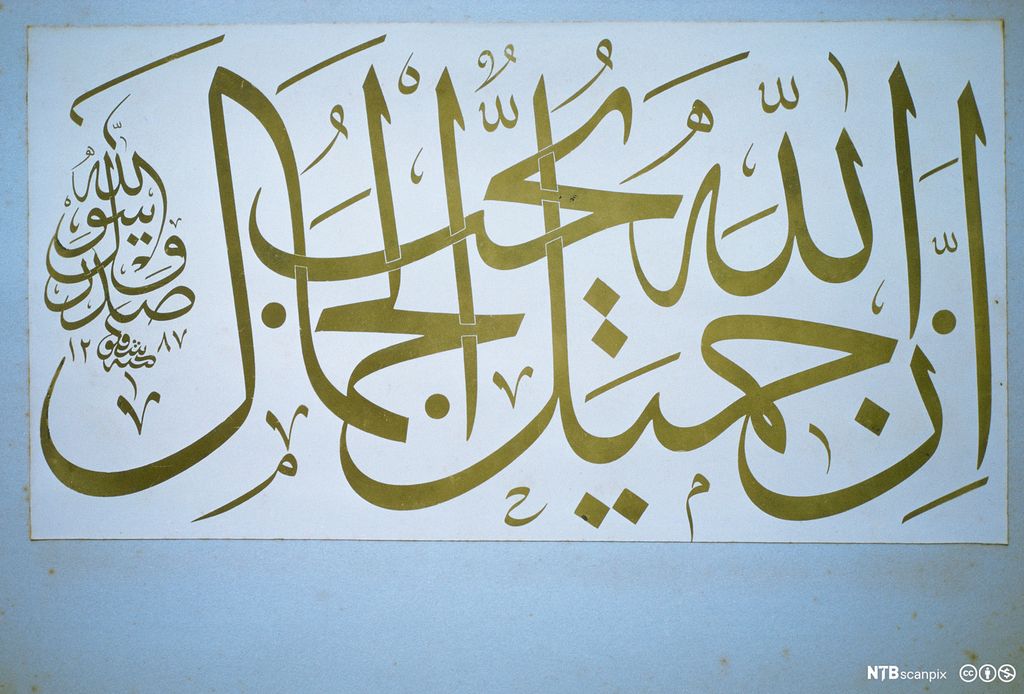 إِنَّ اللّٰهَ جَمِيلٌ يُحِبُّ الْجَمَالَ
صدق رسول الله
كتبه شفيق
١٢٨٧
NTB scanpix